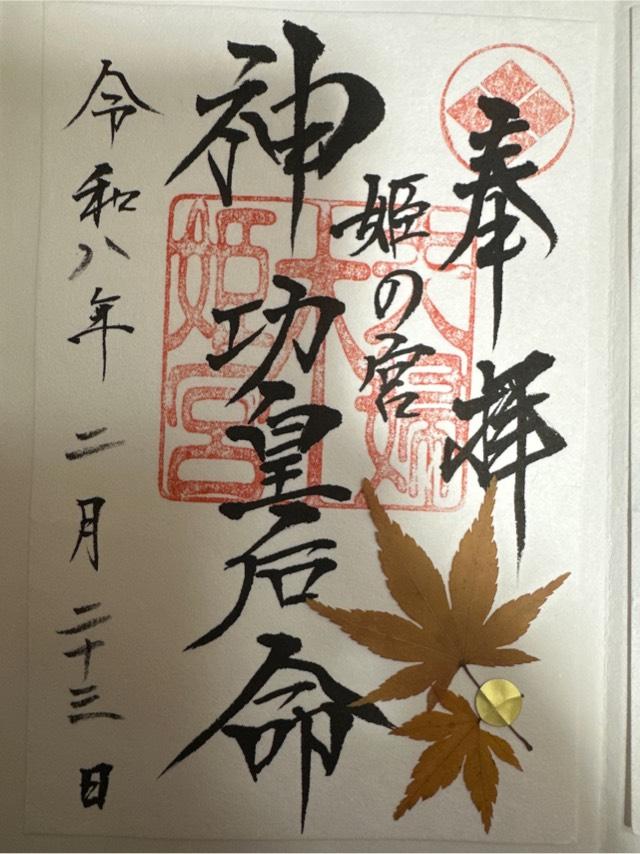 奉拝
姫の宮
神功皇后命
令和八年 二月 二十三日